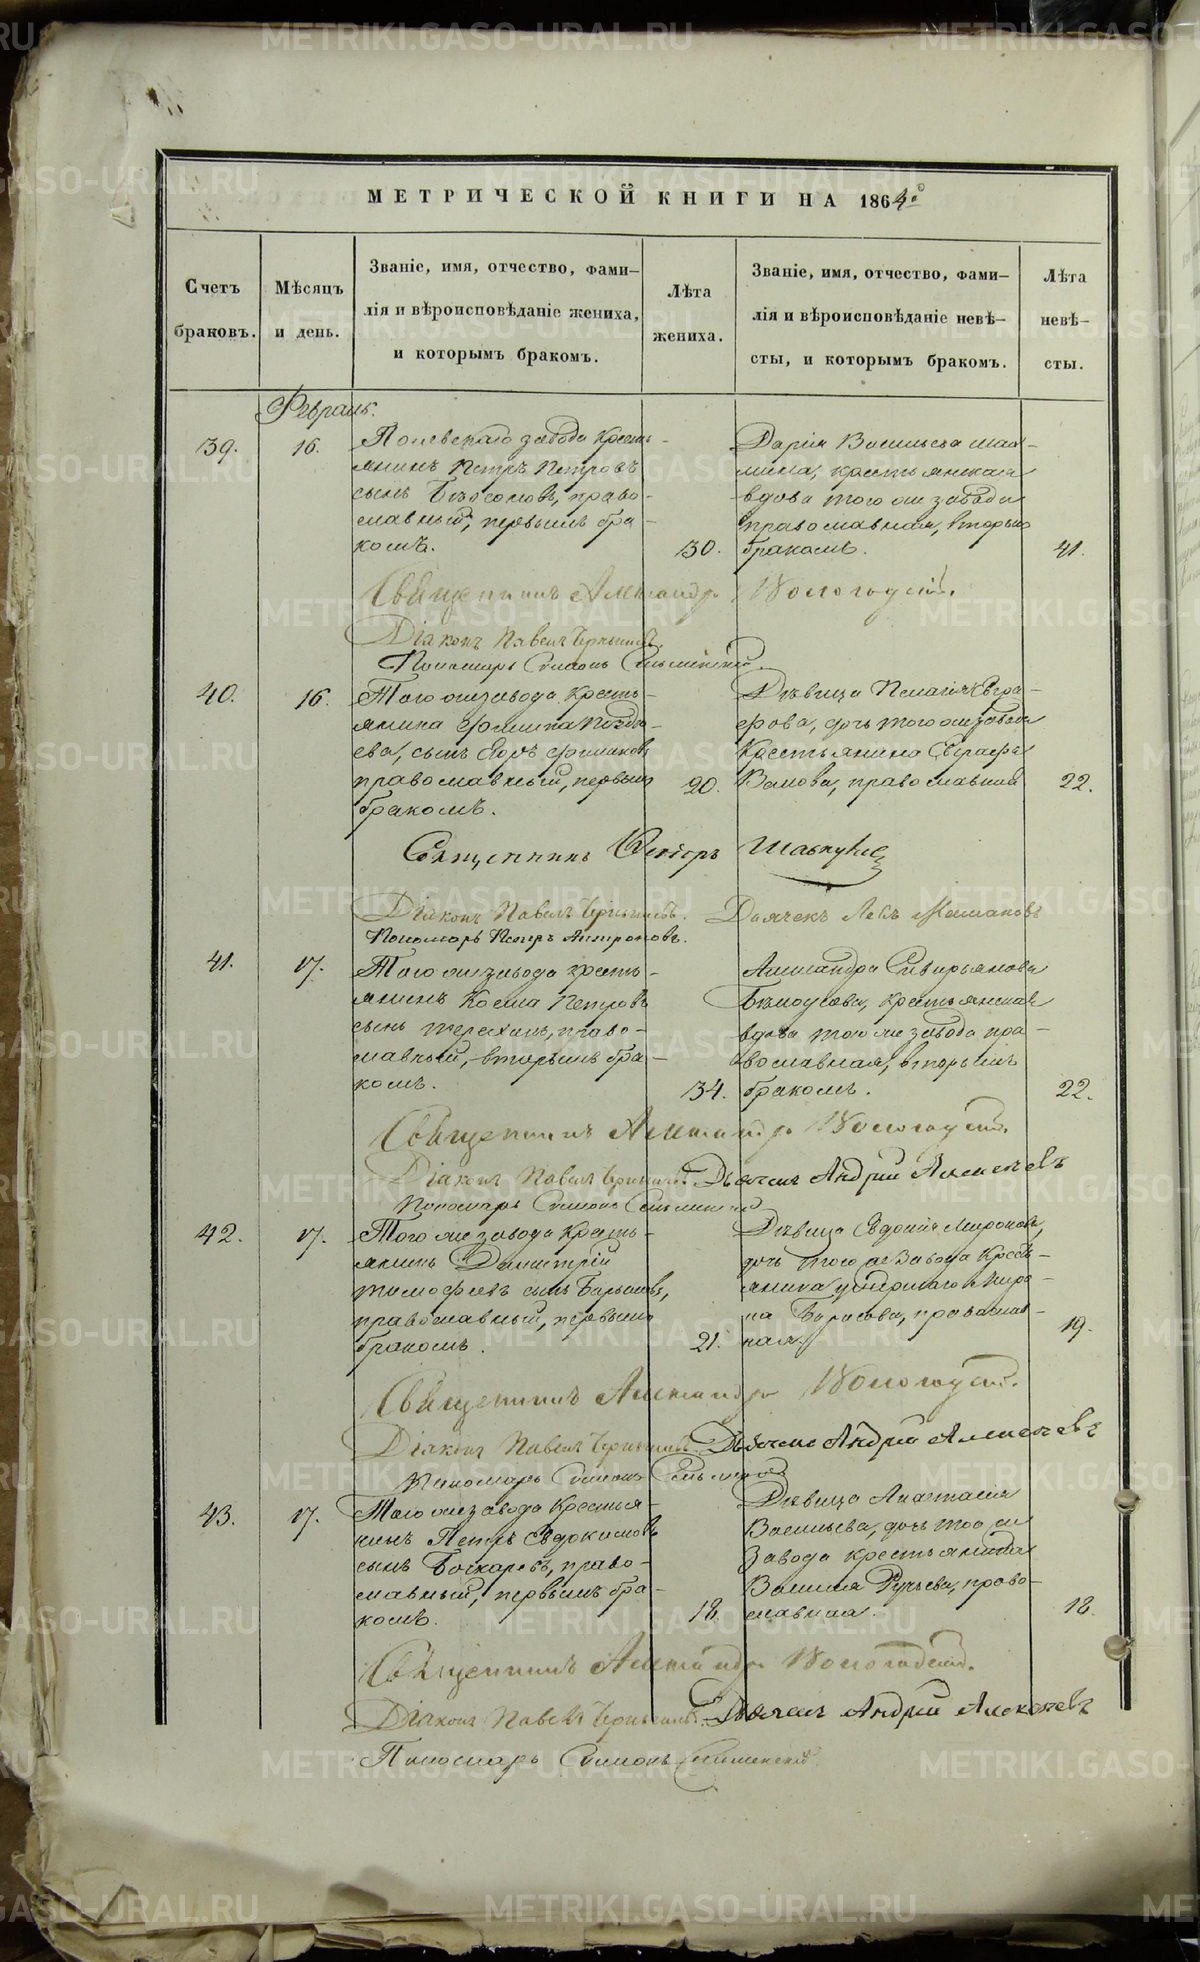 МЕТРИЧЕСКОЙ КНИГИ НА 1864 го
Счетъ браковъ.
Мѣсяцъ и день.
Званіе, имя, отчество, фами-
лія и вѣроисповѣданіе жениха,
и которымъ бракомъ.
Лѣта жениха.
Званіе, имя, отчество, фами-
лія и вѣроисповѣданіе невѣ-
сты, и которымъ бракомъ.
Лѣта невѣ-
сты.
Февраль.
39.
16.
Полевскаго завода кресть-
янинъ Петръ Петровъ
сынъ право-
славный, первымъ бра-
комъ.
30.
Дарія Васильева
крестьянская
вдова того же завода
православная, вторымъ
бракомъ.
41.
Священникъ Александръ Вологодскій.
Діаконъ Павелъ Чернышевъ.
Пономарь Симонъ
40.
16.
Того же завода кресть-
янина Филипа
сынъ Филиповъ
православный, первымъ
бракомъ.
20.
Дѣвица Пелагія Евгра-
фова, дочь того же завода
крестьянина Евграфа
православная
22.
Священникъ Викторъ
Діаконъ Павелъ Чернышевъ.
Дьячекъ
Пономарь Петръ Антроповъ.
41.
17.
Того же завода кресть-
янинъ Косма Петровъ
сынъ право-
славный, вторымъ бра-
комъ.
34.
Александра
Бѣлоусова, крестьянская
вдова того же завода пра-
вославная, вторымъ
бракомъ.
22.
Священникъ Александръ Вологодскій.
Діаконъ Павелъ Чернышевъ.
Дьячекъ Андрей Алексѣевъ
Пономарь Симонъ
42.
17.
Того же завода кресть-
янинъ Димитрій
Тимофеевъ сынъ
православный, первымъ
бракомъ.
21.
Дѣвица Евдокія Миронова,
дочь того же завода кресть-
янина умершаго Миро-
на Борисова, православ-
ная.
19.
Священникъ Александръ Вологодскій.
Діаконъ Павелъ Чернышевъ.
Дьячекъ Андрей Алексѣевъ
Пономарь Симонъ
43.
17.
Того же завода крестья-
нинъ Петръ Евдокимовъ
сынъ Бочкаревъ, право-
славный, первымъ бра-
комъ.
18.
Дѣвица Анастасія
Васильева, дочь того же
завода крестьянина
Василія Ручьева, право-
славная.
18.
Священникъ Александръ Вологодскій.
Діаконъ Павелъ Чернышевъ.
Дьячекъ Андрей Алексѣевъ
Пономарь Симонъ
METRIKI.GASO-URAL.RU